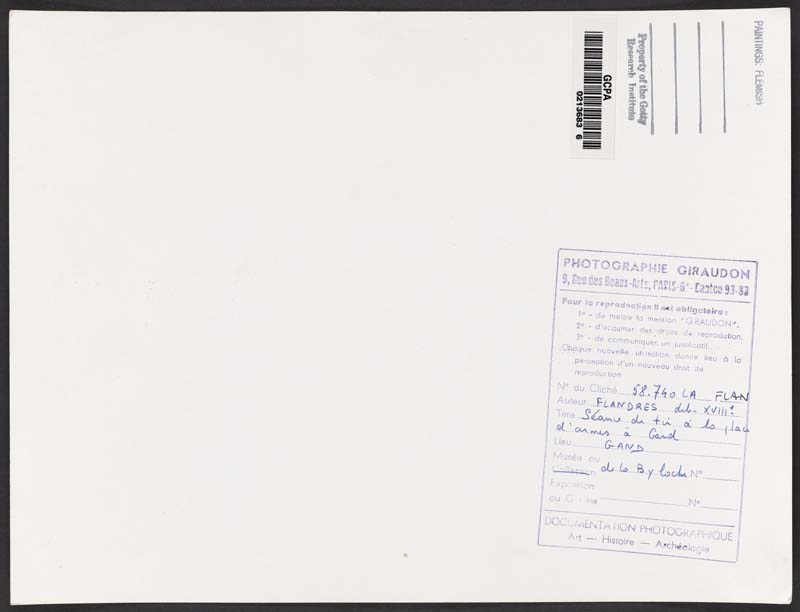 PAINTINGS: FLEMISH
Property of the Getty
Research Institute
GCPA
0213683 6
PHOTOGRAPHIE GIRAUDON
9, Rue des Beaux-Arts, PARIS-6e - Danton 93-83
Pour la reproduction il est obligatoire :
1° - de mettre la mention "GIRAUDON".
2° - d'acquitter des droits de reproduction.
3° - de communiquer un justificatif.
Chaque nouvelle utilisation donne lieu à la
perception d'un nouveau droit de
reproduction
N° du Cliché 58.740 LA FLAN
Auteur FLANDRES déb. XVIIIe
Titre Séance de tir à la place
d'armes à Gand
Lieu GAND
Musée ou
Collection de la Byloke N°
Exposition
ou N°
DOCUMENTATION PHOTOGRAPHIQUE
Art — Histoire — Archéologie